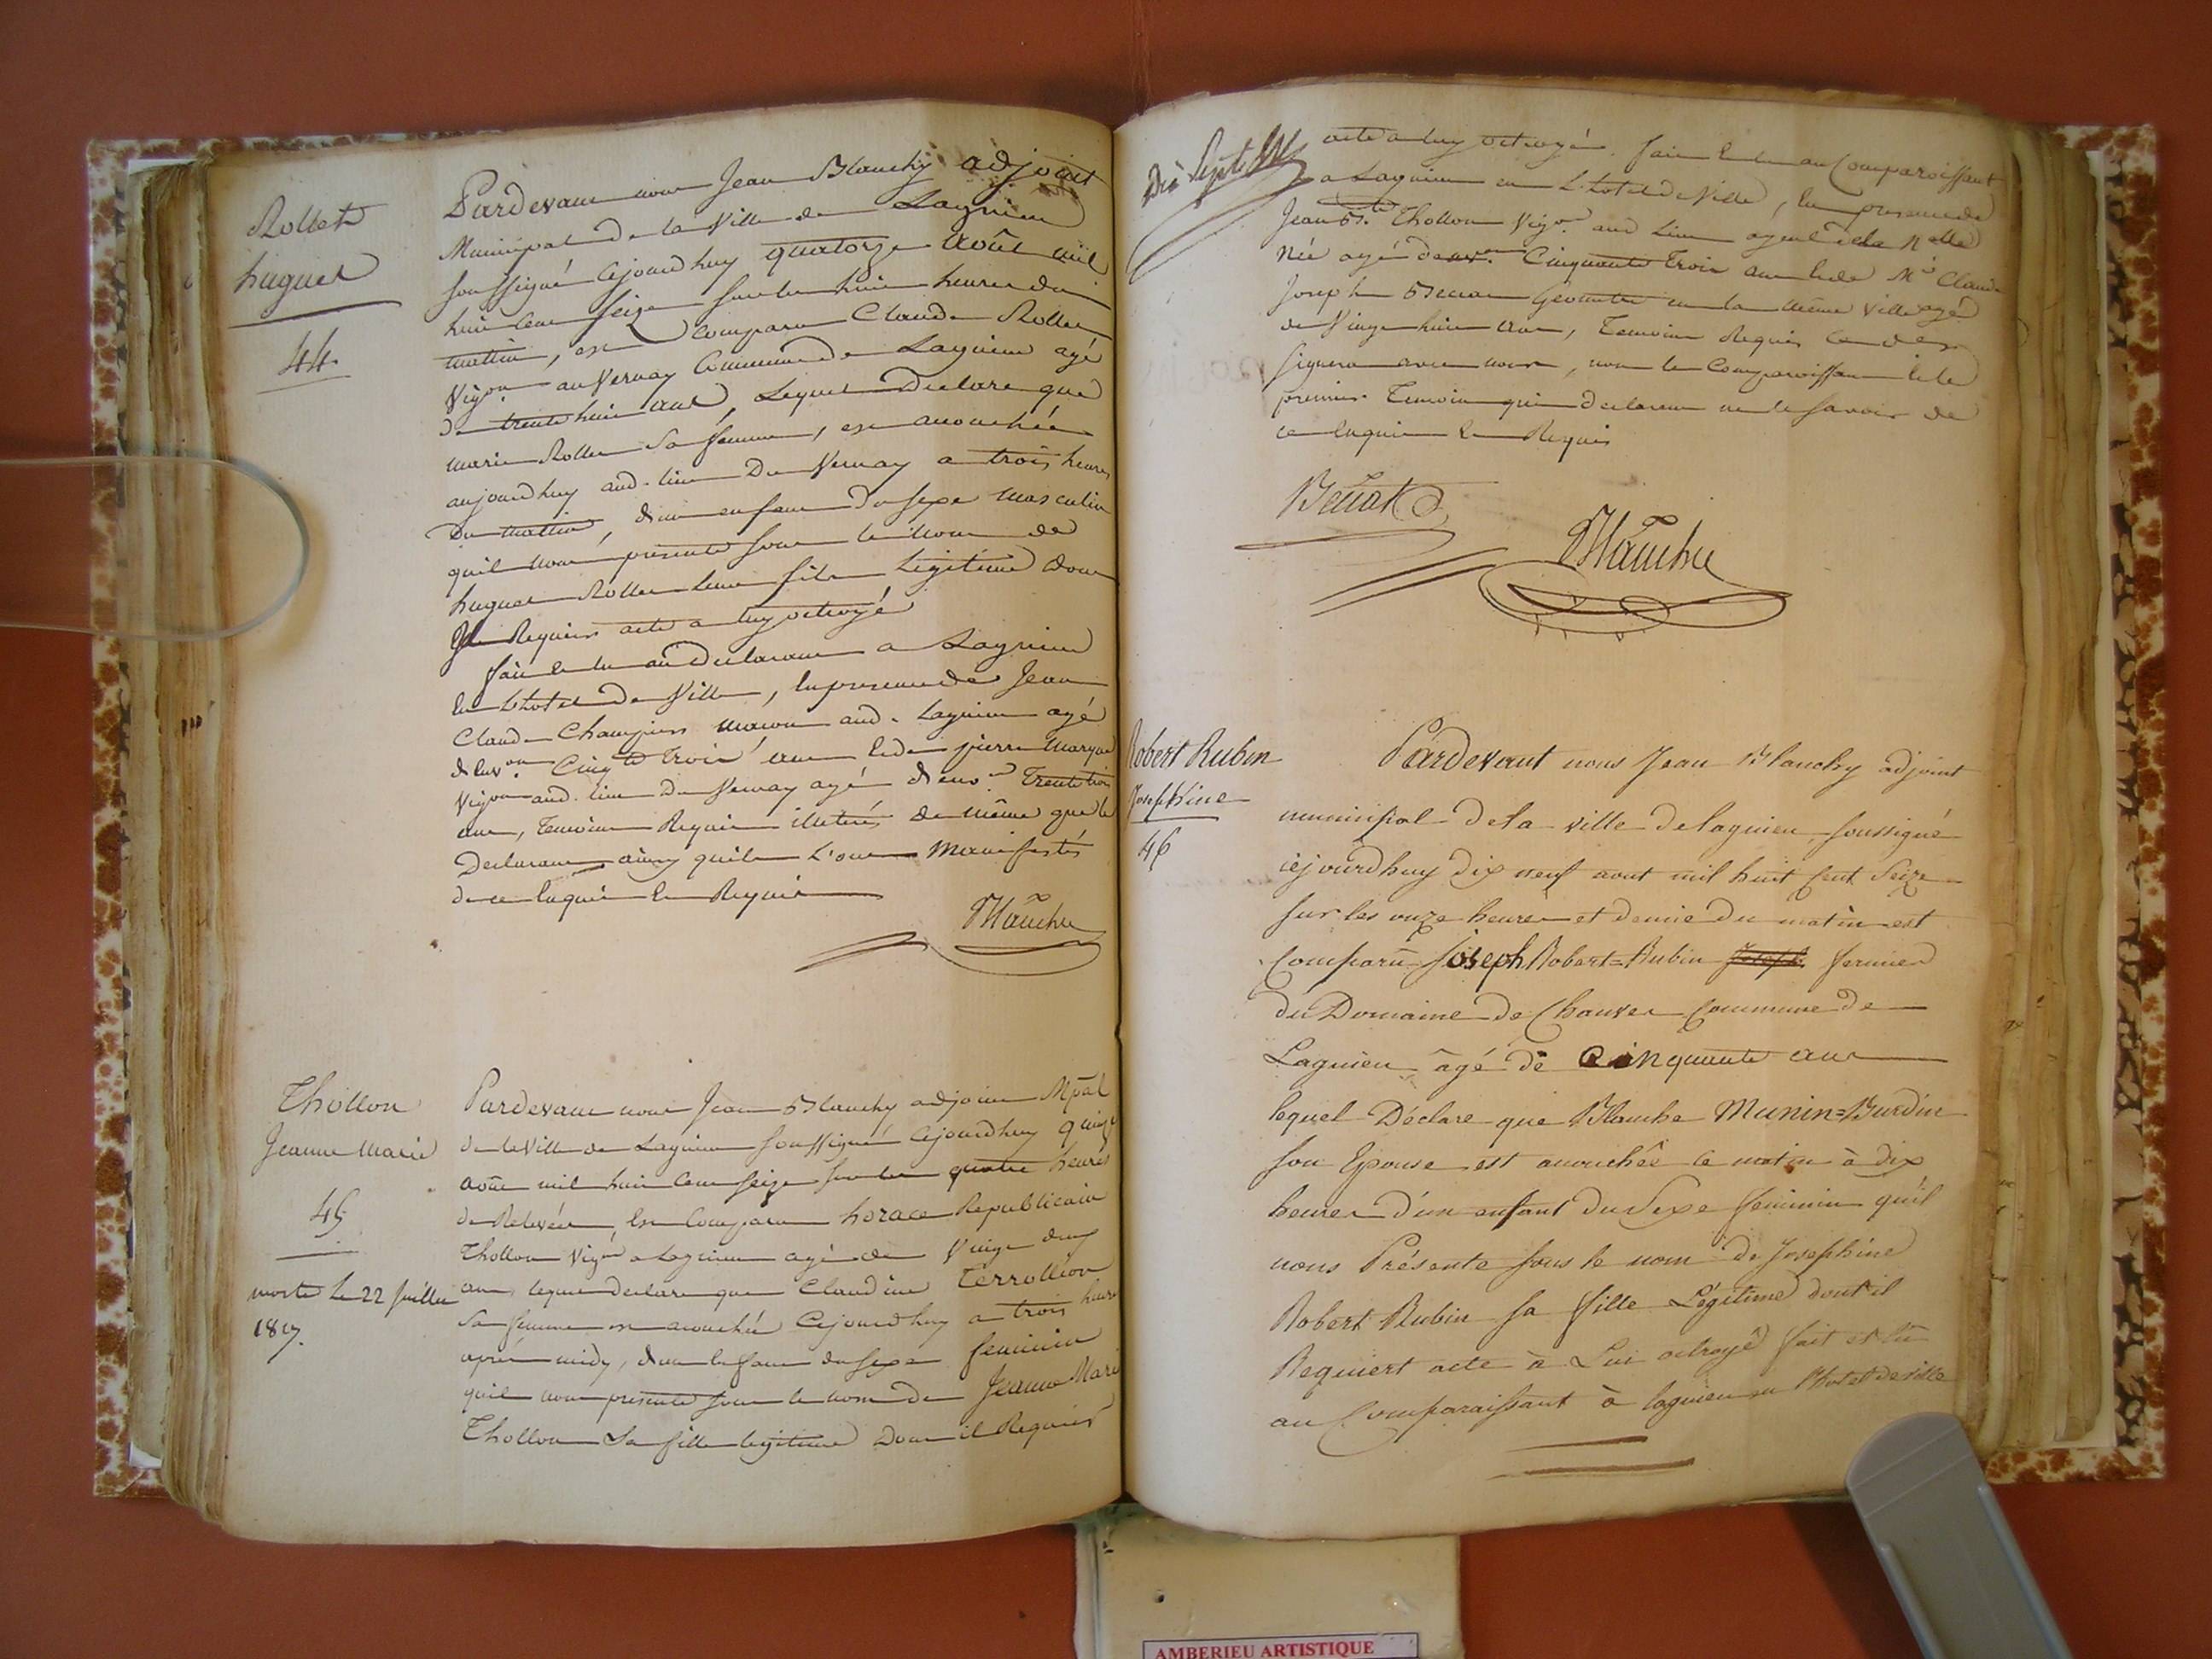 Rollet
huguet
44
Pardevant nous Jean Blanchy adjoint
Municipal de la Ville de Lagnieu
soussigné Cejourdhuy quatorze Août mil
huit cent seize sur les huit heures du
mattin, est comparu Claude Rollet
Vig.on au Vernay Commune de Lagnieu agé
de trente huit ans, Lequel declare que
Marie Rollet sa femme, est accouchée
aujourdhuy aud. lieu Du Vernay a trois heures
Du mattin, d'un enfant du sexe masculin
quil nous presente sous le nom de
huguet Rollet leur fils Légitime dont
Il Requiert acte a luy octroyé
fait et lu au declarant a Lagnieu
En L'hotel De Ville, En presence de Jean
Claude Champier macon aud. Lagnieu agé
d'Env.on Cinq.te trois ans et de pierre
Vigon aud. lieu Du Vernay agé d'env.on Trente trois
ans, temoins Requis illeterés de même que le
Declarant ainsy quils L'ont Manifestés
de ce Enquis Et Requis
Blanchy
Thollon
Jeanne Marie
45
morte le 22 juillet
1817.
Pardevant nous Jean Blanchy adjoint Mpal
de la Ville de Lagnieu soussigné Cejourdhuy quinze
Août mil huit Cent seize sur les quatre heures
de Relevée, Est Comparu horace Republicain
Thollon Vig.on a Lagnieu agé de Vingt deux
ans, lequel declare que Claudine Terrollion
sa femme est acouchée Cejourdhuy a trois heures
aprés midy, d'un Enfant du sexe feminin
quil nous presente sous le nom de Jeanne Marie
Thollon Sa fille legitime Dont il Requiert
Dix Sept
acte a luy octroyé. fait Et lu au Comparoissant
a Lagnieu en L'hotel de Ville, En presence de
Jean B.te Thollon Vig.on aud Lieu ayeul de la N.elle
Née agé d'env.on Cinquante trois ans Et de M.r Claude
Joseph Geometre en la même Ville agé
de Vingt huit ans, Temoins Requis
signera avec nous, non le Comparoissant Et le
premier Temoin qui declarent ne le savoir de
ce Enquis Et Requis
Blanchy
Robert Rubin
Josephine
46
Pardevant nous Jean Blanchy adjoint
municipal de la ville de lagnieu, soussigné
cejourdhuy dix neuf aout mil huit Cent Seize
sur les onze heures et demie du matin est
Comparu Joseph Robert=Rubin Joseph fermier
du Domaine de Chanves Commune de
Lagnieu âgé de Cinquante ans
lequel Déclare que Blanche Munin=Burdin
son Epouse est accouchée ce matin à dix
heures d'un enfant du Sexe féminin qu'il
nous Présente sous le nom de Josephine
Robert Rubin sa fille Légitime dont il
Requiert acte à Lui octroyé fait et lu
au Comparaissant à lagnieu en l'hotel de ville
AMBERIEU ARTISTIQUE